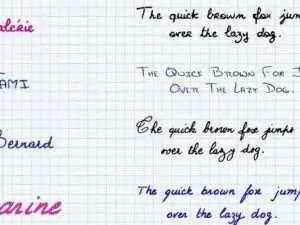 alérie
The quick brown fox jum
over the lazy dog.
AMI
THE QUICK BROWN FOX J
OVER THE LAZY DOG.
Bernard
The quick brown fox jimps
over the lazy dog.
arine
The quick brown fox jump
over the lazy dog.